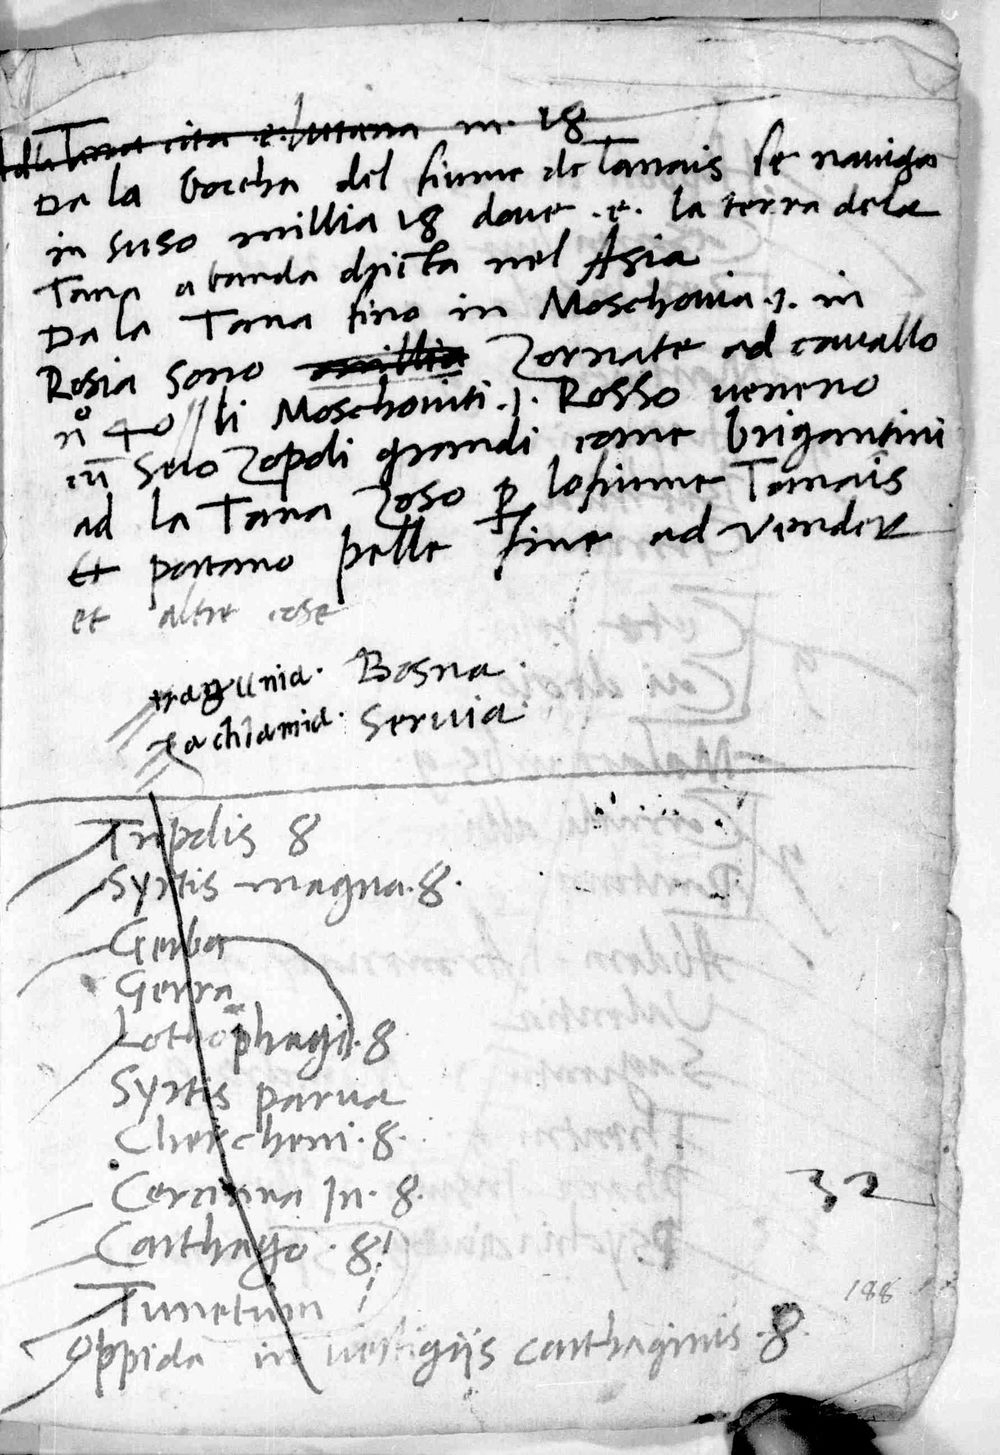 Tana cita .e. lutana m. 18
Da la boccha del fiume de Tanais se nauiga
in suso millia 18 doue .e. la terra dela
Tana a banda dricta nel Asia
Da la Tana fino in Moschouia .j. in
Rosia sono millia Zornate ad cauallo
nº 40 // li Moschouiti .j. Rosso ueneno
cū Solo Zopoli grandi come brigantini
ad la Tana Zoso ꝑ lo fiume Tanais
Et portano pelle fine ad vender
et altre cose
tragunia. Bosna.
zachiamia. Seruia
Tripolis 8
Syrtis magna. 8.
Gerba
Gerra
Lotophagi. 8
Syrtis parua
Chercheni. 8.
Cercinna In. 8.
32
Carthago. 8
Tunetum
188
Oppida in uestigijs carthaginis. 8.